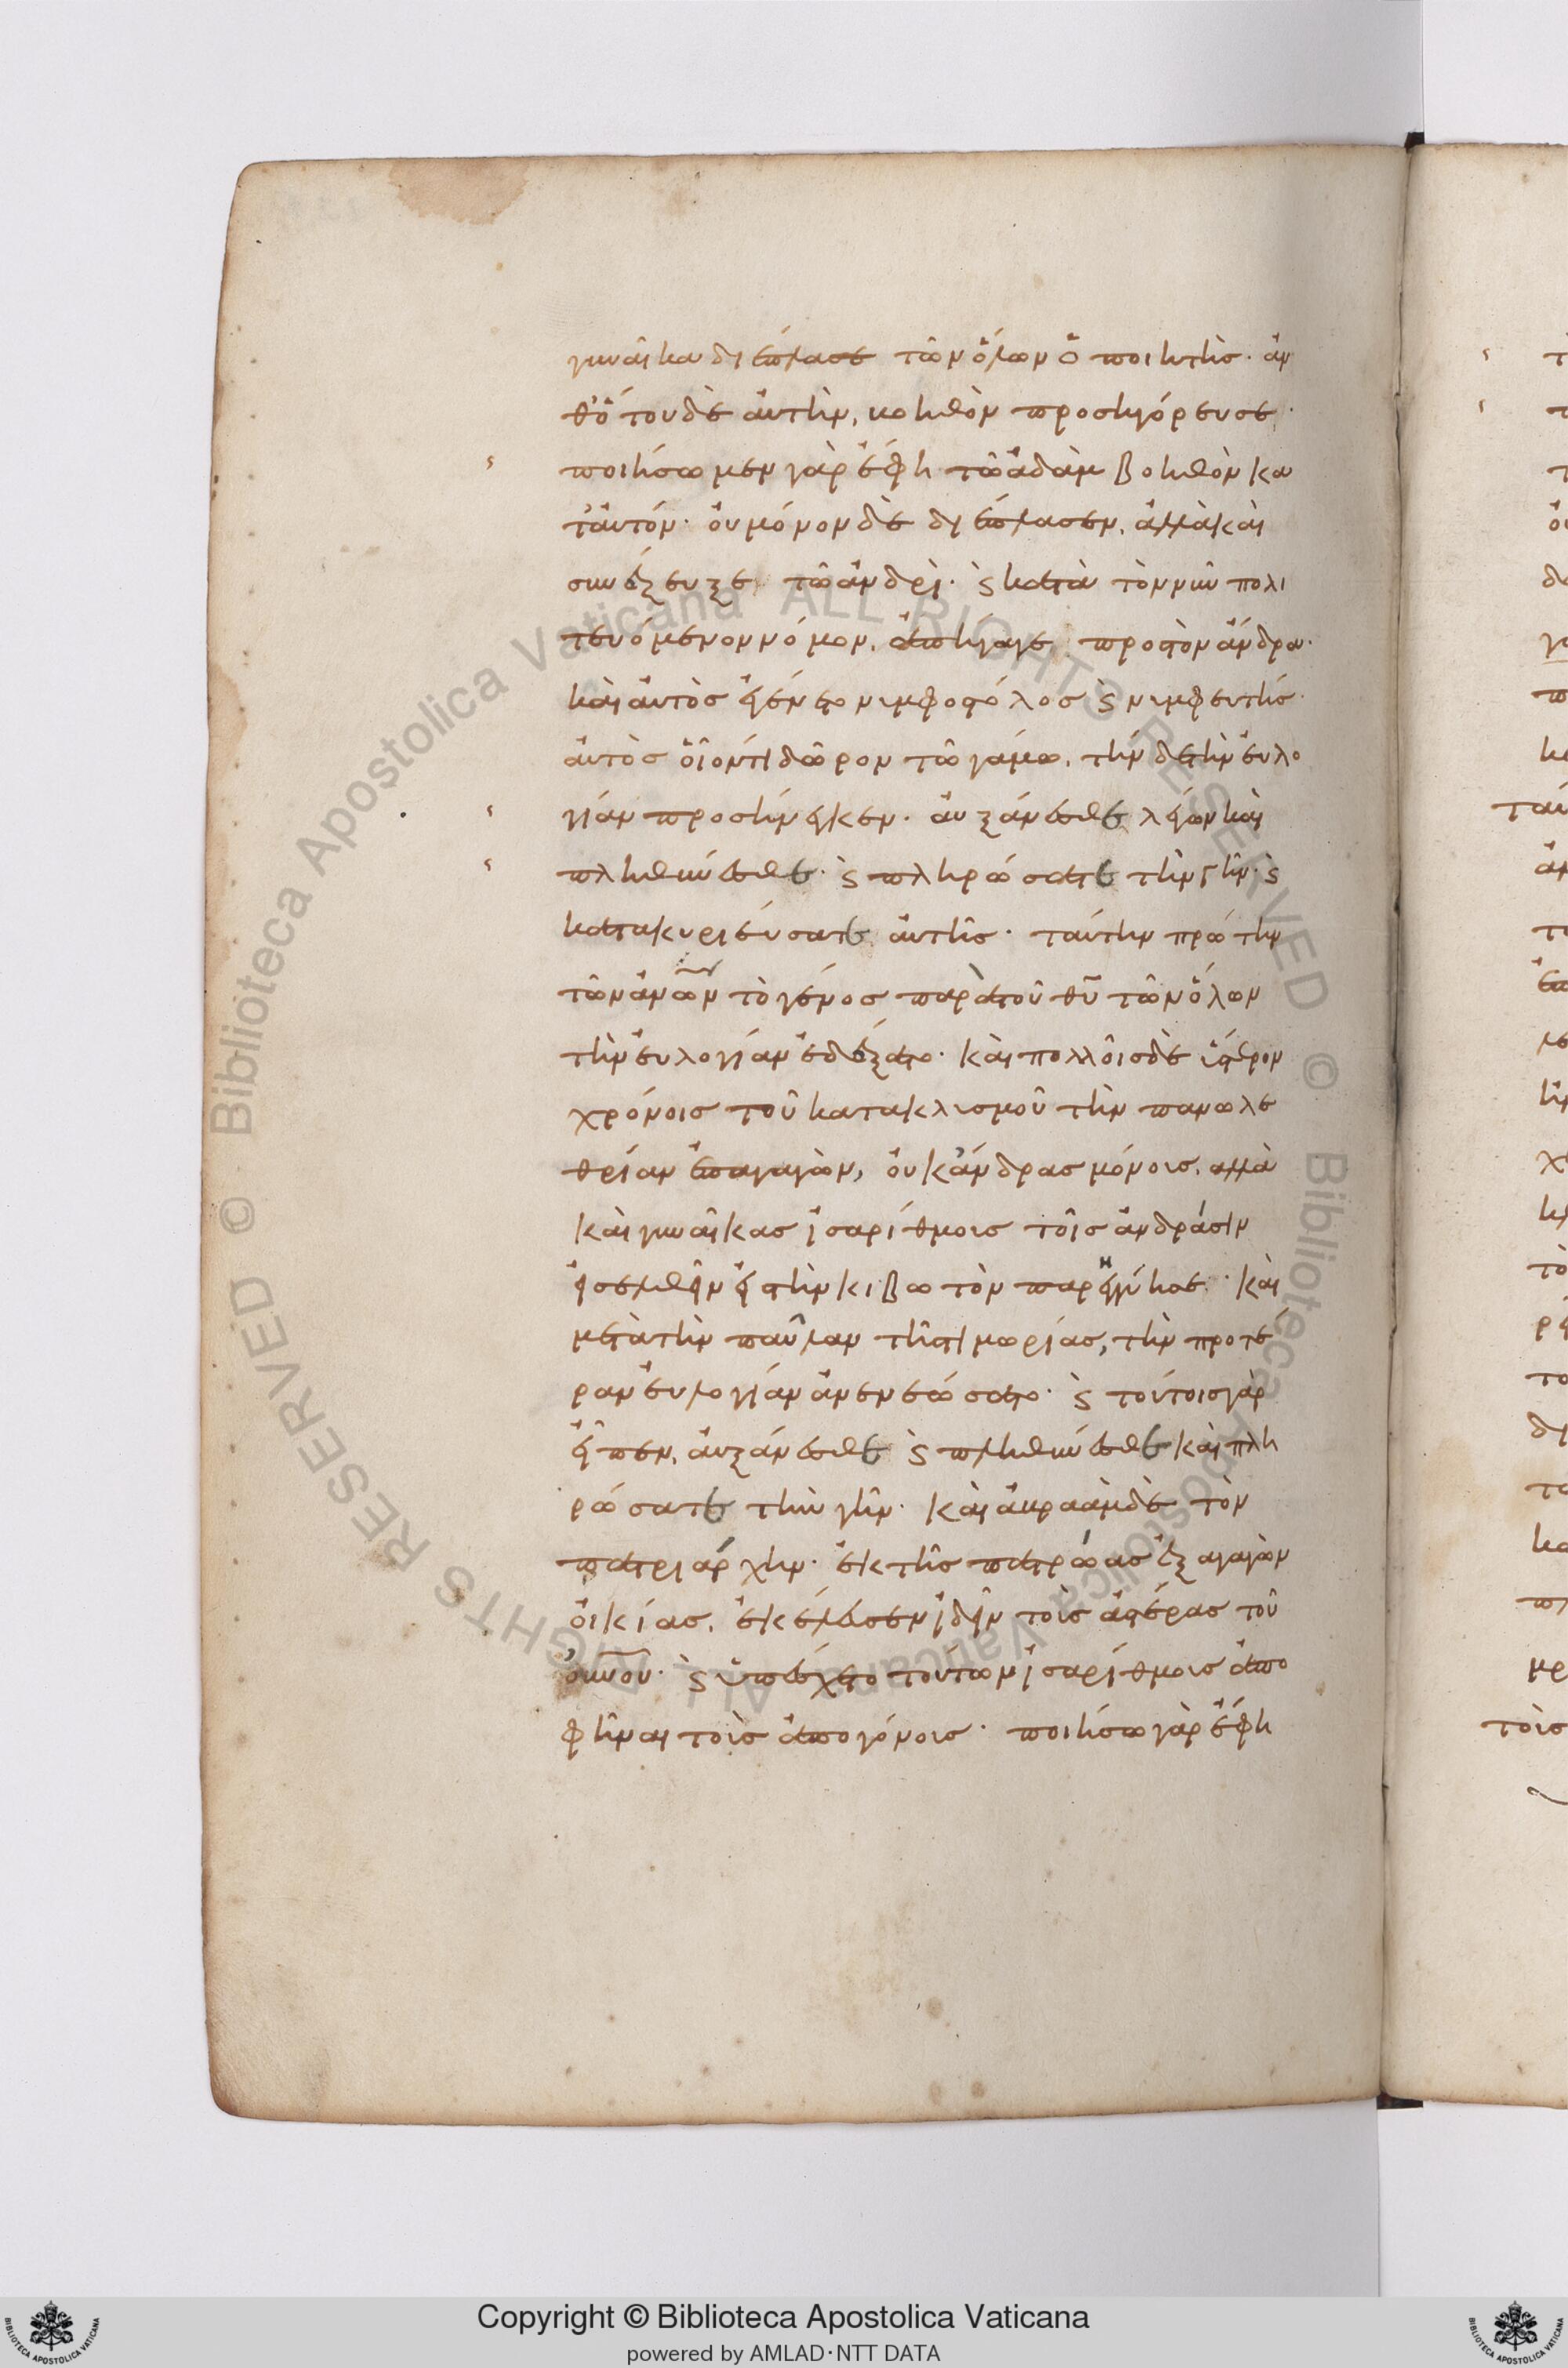 γυναῖκα διέπλασε τῶν ὅλων ὁ ποιητὴς· ἀν
θ' ὅτου δὲ αὐτὴν, βοηθὸν προσηγόρευσε·
ποιήσωμεν γὰρ ἔφη τῶ ἀδὰμ βοηθὸν κα
τ' ἀυτόν· ὀυ μόνον δὲ διέπλασεν, ἀλλὰ καὶ
συνέζευξε τῶ ἀνδρὶ· ϗ κατὰ τὸν νῦν πολι
τευόμενον νόμον, ἀπήγαγε προς τὸν ἄνδρα·
καὶ ἀυτὸς ἐγένετο νυμφοστόλος ϗ νυμφευτὴς·
ἀυτὸς ὁῖόν τι δῶρον τῶ γάμω, τήν δε τὴν ἐυλο
γίαν προσήνεγκεν· ἀυξάνεσθε λέγων καὶ
πληθύνεσθε· ϗ πληρώσατε τὴν γῆν· ϗ
κατακυριέυσατε ἀυτῆς· ταύτην πρώτην
τῶν ἀνων τὸ γένος παρὰ τοῦ θυ τῶν ὅλων
τὴν ἐυλογίαν ἐδέξατο· καὶ πολλοῖς δὲ ὕστερον
χρόνοις τοῦ κατακλισμοῦ τὴν πανωλε
θρίαν ἐπαγαγὼν, ὀυκ ἄνδρας μόνοις, αλλὰ
καὶ γυναῖκας ἰσαρίθμοις τοῖς ἀνδράσιν
ἐισελθεῖν ἐις τὴν κιβωτὸν παρεγγύησε· καὶ
μετὰ τὴν παῦλαν τῆς τιμωρίας, τὴν προτέ
ραν ἐυλογίαν ἀνενεώσατο· ϗ τούτοις γὰρ
εἶπεν, ἀυξάνεσθε ϗ πληθύνεσθε καὶ πλη
ρώσατε τὴν γῆν· καὶ ἀβραὰμ δὲ τὸν
πατριάρχην· ἐκ τῆς πατρώας ἐξαγαγὼν
ὀικίας, ἐκέλευσεν ἰδεῖν τοὶς ἀστέρας τοῦ
ὀυνου· ϗ ὑπέσχετο τούτων ἰσαρίθμοις ἀπο
φῆναι τοὶς ἀπογόνοις· ποιήσω γὰρ ἔφη